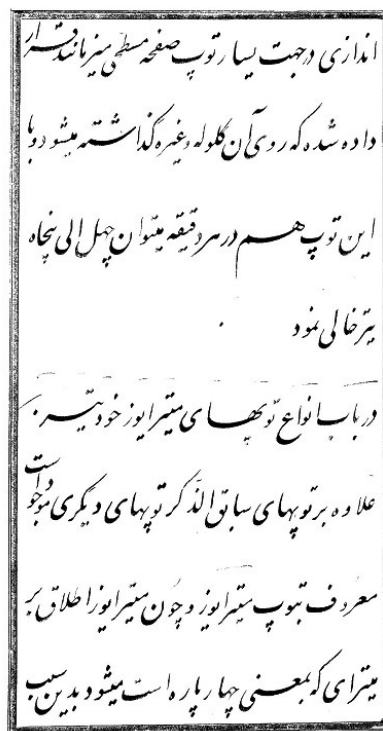 اندازی درجهت یسار توپ صفحه مسطحی میز مانند قرار
داده شده که روی آن گلوله وغیره گذاشته میشود و با
این توپ هم در هر دقیقه میتوان چهل الی پنجاه
تیر خالی نمود
در باب انواع توپهای میترایوز خود تیر
علاوه بر توپهای سابق الذکر توپهای دیگری موجود است
معروف بتوپ میترایوز و چون میترایوز اطلاق بر
میترای که بمعنی چهارپاره است میشود بدین سبب